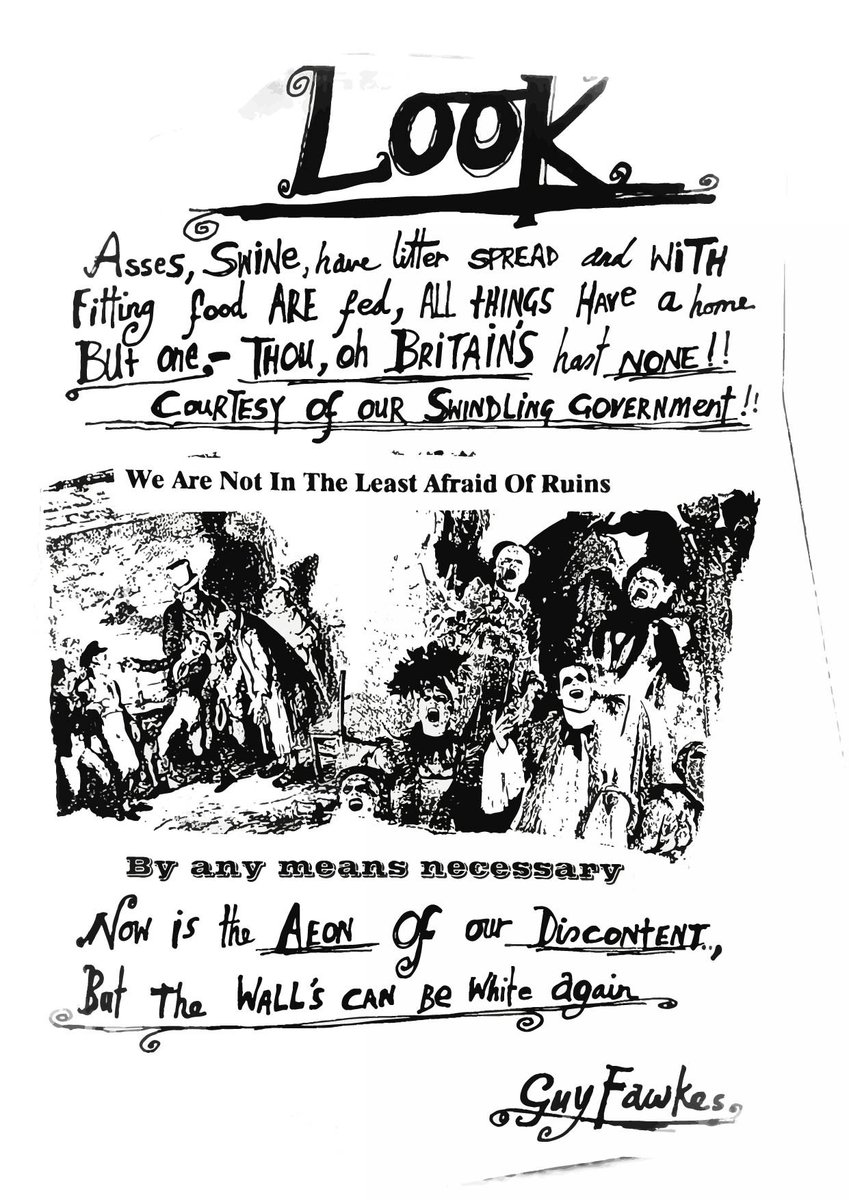 LOOK
Asses, SWINE, have litter SPREAD and WiTH
Fitting food ARE fed, ALL tHiNGS HAVe a home
BUt one.- THOU, oh BRiTAiN'S hast NONE!!
COURTESY of OUR SWINDLiNG GOVERNMENt!!
We Are Not In The Least Afraid Of Ruins
By any means necessary
Now is the AEON Of our DiSCONTENT..,
But THe WALL'S CAN Be White again
Guy Fawkes